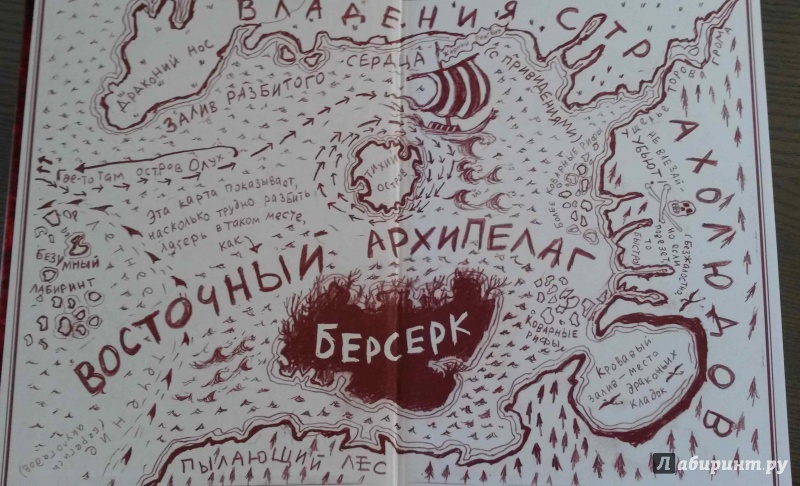 ВЛАДЕНИЯ СТРАХОЛЮДОВ
ДРАКОНИЙ НОС
ЗАЛИВ РАЗБИТОГО СЕРДЦА
С ПРИВИДЕНИЯМИ)
УЩЕЛЬЕ ТОРОВА ГРОМА
НЕ ВЛЕЗАЙ -
УБЬЮТ!
Где-то там остров Олух
ТИХИЙ
ОСТРОВ
КОВАРНЫЕ РИФЫ
Эта карта показывает,
насколько трудно разбить
лагерь в таком месте,
как
НО ЕСЛИ
ПОВЕЗЕТ
ТО
БЫСТРО
ВОСТОЧНЫЙ АРХИПЕЛАГ
БЕЗУМНЫЙ
ЛАБИРИНТ
БЕРСЕРК
КОВАРНЫЕ
РИФЫ
КРОВАВЫЙ
ЗАЛИВ МЕСТО
ДРАКОНЬИХ
КЛАДОК
ПЫЛАЮЩИЙ ЛЕС
Лабиринт.ру